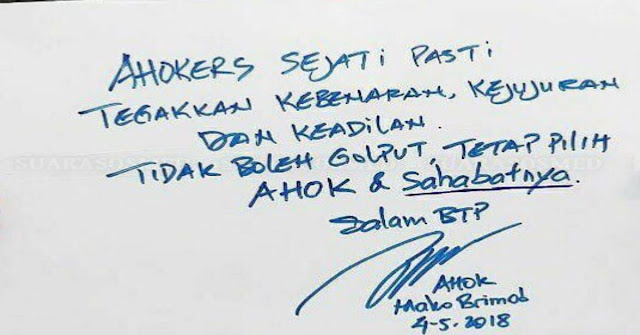 AHOKERS SEJATI PASTI
TEGAKKAN KEBENARAN, KEJUJURAN
DAN KEADILAN.
TIDAK BOLEH GOLPUT, TETAP PILIH
AHOK & Sahabatnya.
Salam BTP
AHOK
Mako Brimob
4-5-2018